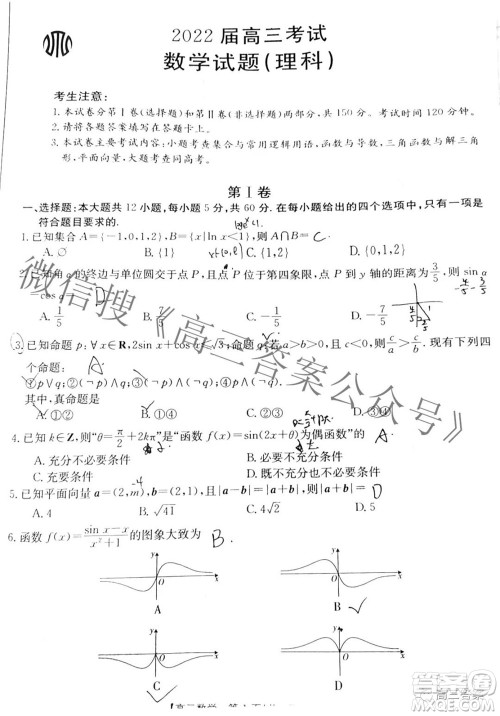 2022届高三考试
数学试题(理科)
考生注意:
1.本试卷分第Ⅰ卷(选择题)和第Ⅱ卷(非选择题)两部分,共150分。考试时间120分钟。
2.请将各题答案填写在答题卡上。
3.本试卷主要考试内容:小题考查集合与常用逻辑用语,函数与导数,三角函数与解三角
形,平面向量,大题考查同高考。
第Ⅰ卷
一、选择题:本大题共12小题,每小题5分,共60分.在每小题给出的四个选项中,只有一项是
符合题目要求的.
1.已知集合A={-1,0,1,2},B={x|ln x<1},则A∩B= C
A.∅ B.{1} C.{1,2} D.{0,1,2}
2.已知角α的终边与单位圆交于点P,且点P位于第四象限,点P到y轴的距离为3/5,则sin α
cos α= D
A.1/5 B.-1/5 C.7/5 D.-7/5
3.已知命题p:∀x∈R,2sin x+cos x<√3;命题q:若a>b>0,且c/a>c/b.现有下列四
个命题: A
①p∨q;②(¬p)∧q;③(¬p)∧(¬q);④p∧(¬q).
其中,真命题是
A.①② B.①④ C.②③ D.③④
4.已知k∈Z,则“θ=π/2+2kπ”是“函数f(x)=sin(2x+θ)为偶函数”的 A
A.充分不必要条件 B.必要不充分条件
C.充要条件 D.既不充分也不必要条件
5.已知平面向量a=(2,m),b=(2,1),且|a-b|=|a+b|,则|a+b|= D
A.4 B.√21 C.4√2 D.5
6.函数f(x)=(sin x-x)/(x²+1)的图象大致为 B
A B
C D
微信搜《高三答案公众号》
高三答案